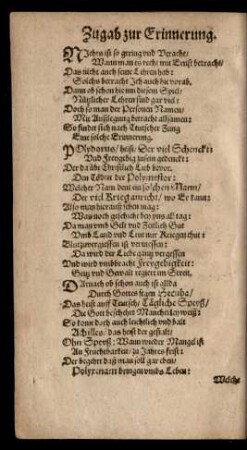 Zugab zur Erinnerung.
Nichts ist so gering und Veracht/
Wann man es recht mit Ernst betracht/
Das nicht auch seine Lehren hab:
Solchs betracht Ich auch hie vorab.
Dann ob schon hie inn diesem Spiel/
Nützlicher Lehren sind gar viel:
Doch so man der Personen Namen/
Mit Außlegung betracht allsamen:
So findt sich nach Teutscher Zung
Eine solche Erinnerung.
Polydorus, heist/ Der viel Schenckt:
Und Freygebig zusein gedenckt:
Der da übt Christlich Lieb bevor,
Den Tödten die Polymestor:
Welcher Nam dem ein solchen Mann/
Der viel Kriegt anricht/ wo Er kann:
Also man hierauß sehen mag:
Was noch geschicht bey uns all tag:
Da man umb Gelt und Zeitlich Gut
Umb Land und Leut nur Kriegen thut:
Blutzvergiessen ist vermessen:
Da wird der Liebe gantz vergessen
Und wird umbbracht Freygebigkeit:
Geitz und Gwalt regiert im Streit,
Darnach ob schon auch ist allda
Durch Gottes segen Hecuba/
Das heist auff Teutsch/ Tägliche Speyß/
Die Gott beschehrt Mancherley weiß:
So komt doch auch leichtlich und balt
Achilles/ das heist der gestalt:
Ohn Speyß: Wann wieder Mangel ist
An Fruchtbarkeit/ zu Jahres frist:
Der begehrt daß man soll gar eben/
Polyxinam bringen umbs Leben:
Welche